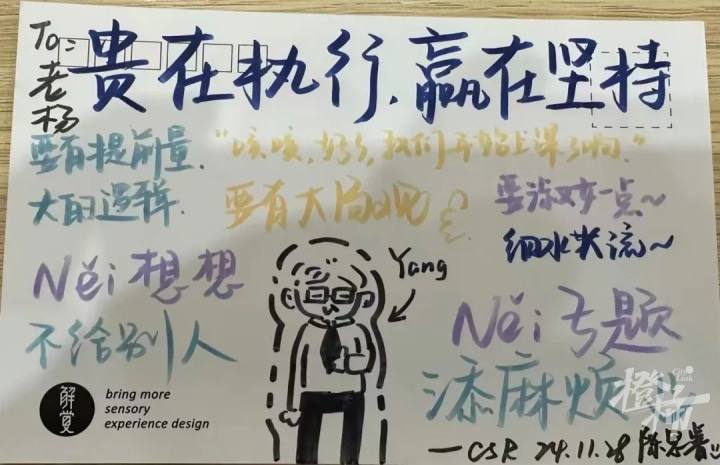 To:老杨
贵在执行,赢在坚持
要有提前量.
"咳咳,好了,我们开始上课了啊."
大的逻辑.
要有大局观
要淑女一点~
细水长流~
Něi想想
Yang
不给别人
Něi 题
添麻烦
解覺
bring more
sensory
experience design
橙柿
City Link
—CSR 24.11.28